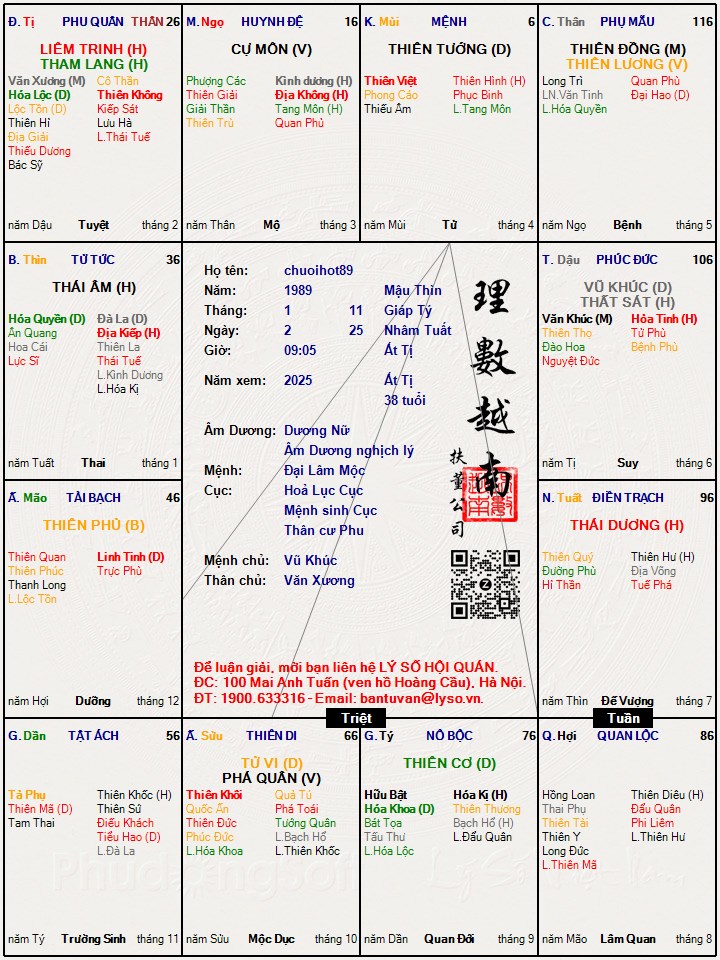 Đ. Tị PHU QUÂN THÂN 26
LIÊM TRINH (H)
THAM LANG (H)
Văn Xương (M) Cô Thần
Hóa Lộc (D) Thiên Không
Lộc Tồn (D) Kiếp Sát
Thiên Hỉ Lưu Hà
Địa Giải L.Thái Tuế
Thiếu Dương
Bác Sỹ
năm Dậu Tuyệt tháng 2
M. Ngọ HUYNH ĐỆ 16
CỰ MÔN (V)
Phượng Các Kình dương (H)
Thiên Giải Địa Không (H)
Giải Thần Tang Môn (H)
Thiên Trù Quan Phủ
năm Thân Mộ tháng 3
K. Mùi MỆNH 6
THIÊN TƯỚNG (D)
Thiên Việt Thiên Hình (H)
Phong Cáo Phục Binh
Thiếu Âm L.Tang Môn
năm Mùi Tử tháng 4
C. Thân PHỤ MẪU 116
THIÊN ĐỒNG (M)
THIÊN LƯƠNG (V)
Long Trì Quan Phù
LN.Văn Tinh Đại Hao (D)
L.Hóa Quyền
năm Ngọ Bệnh tháng 5
B. Thìn TỬ TỨC 36
THÁI ÂM (H)
Hóa Quyền (D) Đà La (D)
Ân Quang Địa Kiếp (H)
Hoa Cái Thiên La
Lực Sĩ Thái Tuế
L.Kình Dương
L.Hóa Kị
năm Tuất Thai tháng 1
Họ tên: chuoihot89
Năm: 1989 Mậu Thìn
Tháng: 1 11 Giáp Tý
Ngày: 2 25 Nhâm Tuất
Giờ: 09:05 Ất Tị
Năm xem: 2025 Ất Tị
38 tuổi
Âm Dương: Dương Nữ
Âm Dương nghịch lý
Mệnh: Đại Lâm Mộc
Cục: Hoả Lục Cục
Mệnh sinh Cục
Thân cư Phu
Mệnh chủ: Vũ Khúc
Thân chủ: Văn Xương
理數越南
扶董公司
Để luận giải, mời bạn liên hệ LÝ SỐ HỘI QUÁN.
ĐC: 100 Mai Anh Tuấn (ven hồ Hoàng Cầu), Hà Nội.
ĐT: 1900.633316 - Email: bantuvan@lyso.vn.
T. Dậu PHÚC ĐỨC 106
VŨ KHÚC (D)
THẤT SÁT (H)
Văn Khúc (M) Hỏa Tinh (H)
Thiên Thọ Tử Phù
Đào Hoa Bệnh Phù
Nguyệt Đức
năm Tị Suy tháng 6
Ấ. Mão TÀI BẠCH 46
THIÊN PHỦ (B)
Thiên Quan Linh Tinh (D)
Thiên Phúc Trực Phù
Thanh Long
L.Lộc Tồn
năm Hợi Dưỡng tháng 12
N. Tuất ĐIỀN TRẠCH 96
THÁI DƯƠNG (H)
Thiên Quý Thiên Hư (H)
Đường Phù Địa Võng
Hỉ Thần Tuế Phá
năm Thìn Đế Vượng tháng 7
Triệt
Tuần
G. Dần TẬT ÁCH 56
Tả Phụ Thiên Khốc (H)
Thiên Mã (D) Thiên Sứ
Tam Thai Điếu Khách
Tiểu Hao (D)
L.Đà La
năm Tý Trường Sinh tháng 11
Ấ. Sửu THIÊN DI 66
TỬ VI (D)
PHÁ QUÂN (V)
Thiên Khôi Quả Tú
Quốc Ấn Phá Toái
Thiên Đức Tướng Quân
Phúc Đức L.Bạch Hổ
L.Hóa Khoa L.Thiên Khốc
năm Sửu Mộc Dục tháng 10
G. Tý NÔ BỘC 76
THIÊN CƠ (D)
Hữu Bật Hóa Kị (H)
Hóa Khoa (D) Thiên Thương
Bát Tọa Bạch Hổ (H)
Tấu Thư L.Đẩu Quân
L.Hóa Lộc
năm Dần Quan Đới tháng 9
Q. Hợi QUAN LỘC 86
Hồng Loan Thiên Diêu (H)
Thai Phụ Đẩu Quân
Thiên Tài Phi Liêm
Thiên Y L.Thiên Hư
Long Đức
L.Thiên Mã
năm Mão Lâm Quan tháng 8